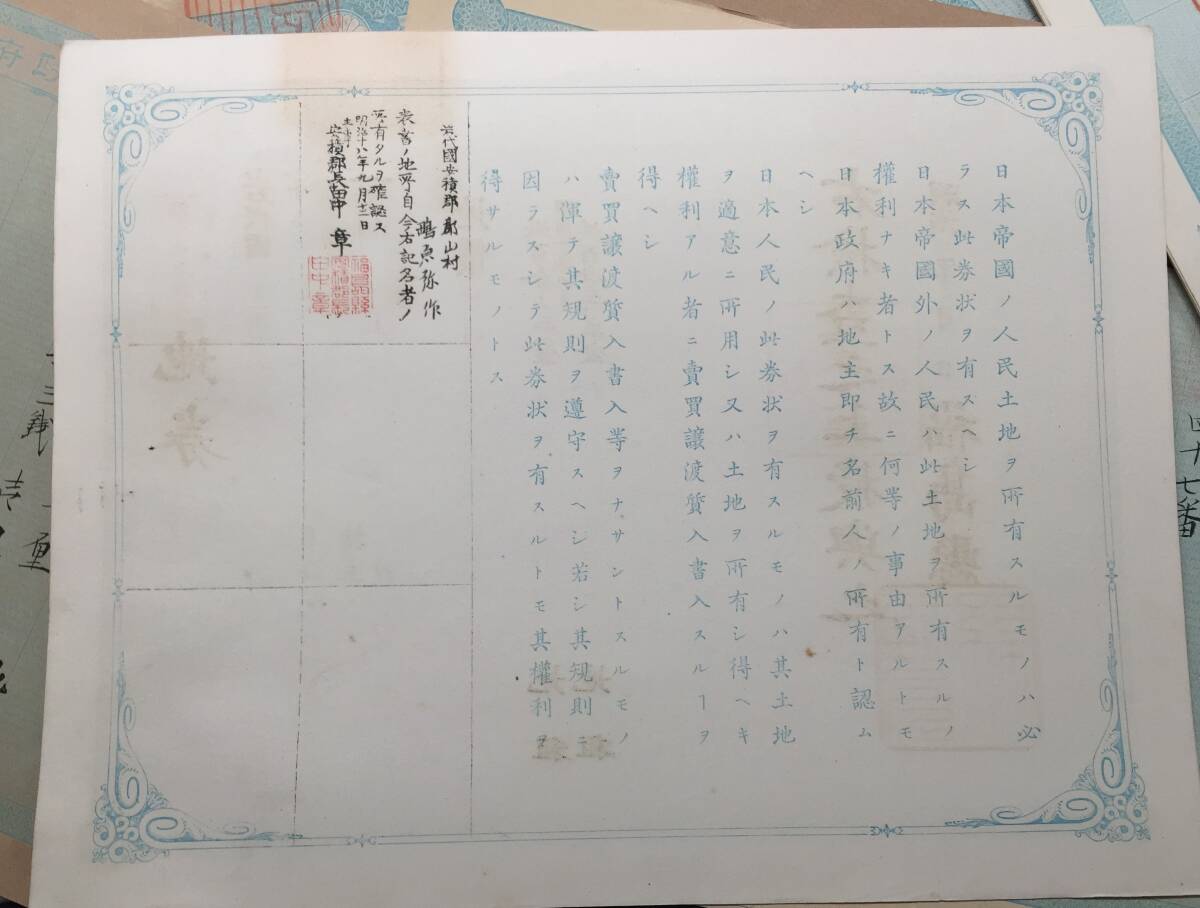 日本帝國ノ人民土地ヲ所有スルモノハ必
ラス此券状ヲ有スヘシ
日本帝國外ノ人民ハ此土地ヲ所有スルノ
權利ナキ者トス故ニ何等ノ事由アルトモ
日本政府ハ地主即チ名前人ノ所有ト認ム
ヘシ
日本人民ノ此券状ヲ有スルモノハ其土地
ヲ適意ニ所用シ又ハ土地ヲ所有シ得ヘキ
權利アル者ニ賣買譲渡質入書入スルヿヲ
得ヘシ
賣買譲渡質入書入等ヲナサントスルモノ
ハ渾テ其規則ヲ遵守スヘシ若シ其規則ニ
因ラスシテ此券状ヲ有スルトモ其權利ヲ
得サルモノトス
岩代國安積郡郡山村
鴫原弥作
表書ノ地所自今右記名者ノ
所有タルヲ確認ス
明治十八年九月十二日
安積郡長田中章
地券
四十七番